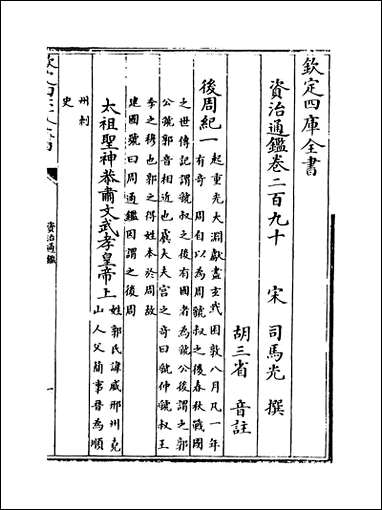 欽定四庫全書
資治通鑑卷二百九十
宋 司馬光 撰
胡三省 音註
後周紀一 起重光大淵獻盡玄黓困敦八月凡一年
有奇 周自以為周虢叔之後春秋戰國
之世傳記謂虢叔之後有國者為虢公後謂之郭
公虢郭音相近也虞大夫宫之奇曰虢仲虢叔王
季之穆也郭之得姓本於周故
建國號曰周通鑑因謂之後周
太祖聖神恭肅文武孝皇帝上 姓郭氏諱威邢州堯
山人父簡事晉為順
州刺
史
資治通鑑
一